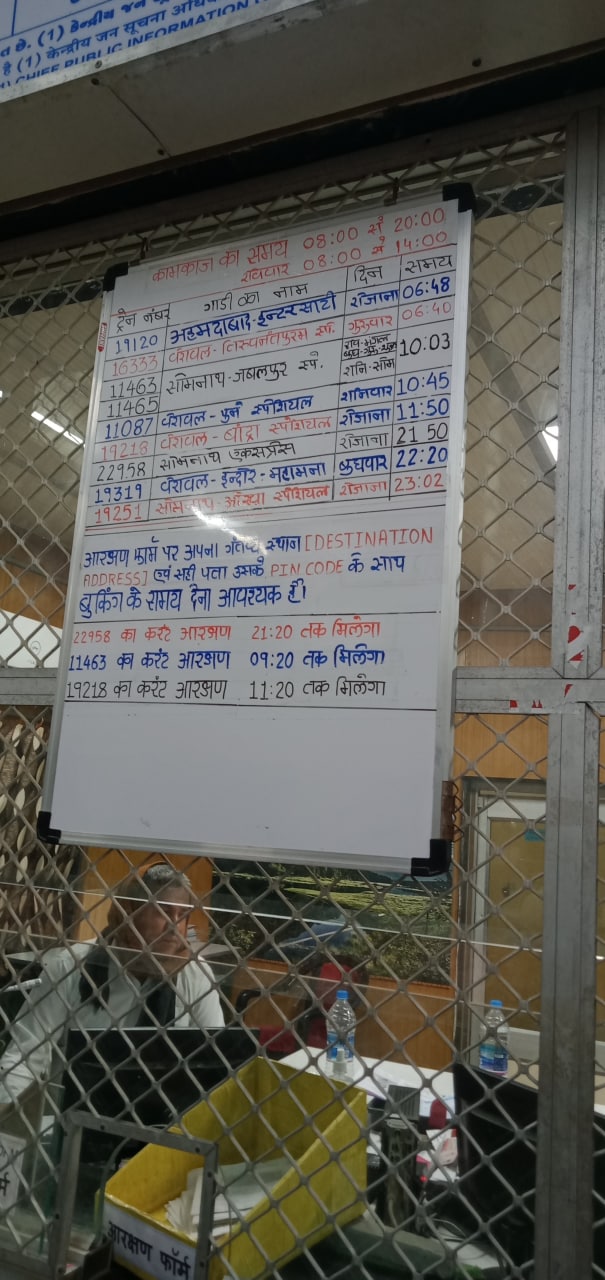 त छे. (1) केन्द्रीय जन
है (1) केन्द्रीय जन सूचना अधि
CHIEF PUBLIC INFORMATION
कामकाज का समय 08:00 से 20:00
रविवार 08:00 से 14:00
ट्रेन नंबर गाडी का नाम दिन समय
19120 अहमदाबाद-ईन्टरसीटी रोजाना 06:48
16333 वेरावल-तिरुवनंतपुरम स्प. गुरुवार 06:40
11463 सोमनाथ-जबलपुर स्प. 10:03
11465 शनि-सोम
11087 वेरावल-पुने स्पेशियल शनिवार 10:45
19218 वेरावल-बांद्रा स्पेशियल रोजाना 11:50
22958 सोमनाथ एकसप्रेस रोजाना 21 50
19319 वेरावल-इन्दौर-महामना बुधवार 22:20
19251 सोमनाथ-ओखा स्पेशियल रोजाना 23:02
आरक्षण फॉर्म पर अपना गंतव्य स्थान [DESTINATION
ADDRESS] एवं सही पता उसके PIN CODE के साथ
बुकिंग के समय देना आवश्यक हैं।
22958 का करंट आरक्षण 21:20 तक मिलेगा
11463 का करंट आरक्षण 09:20 तक मिलेगा
19218 का करंट आरक्षण 11:20 तक मिलेगा
आरक्षण फॉर्म